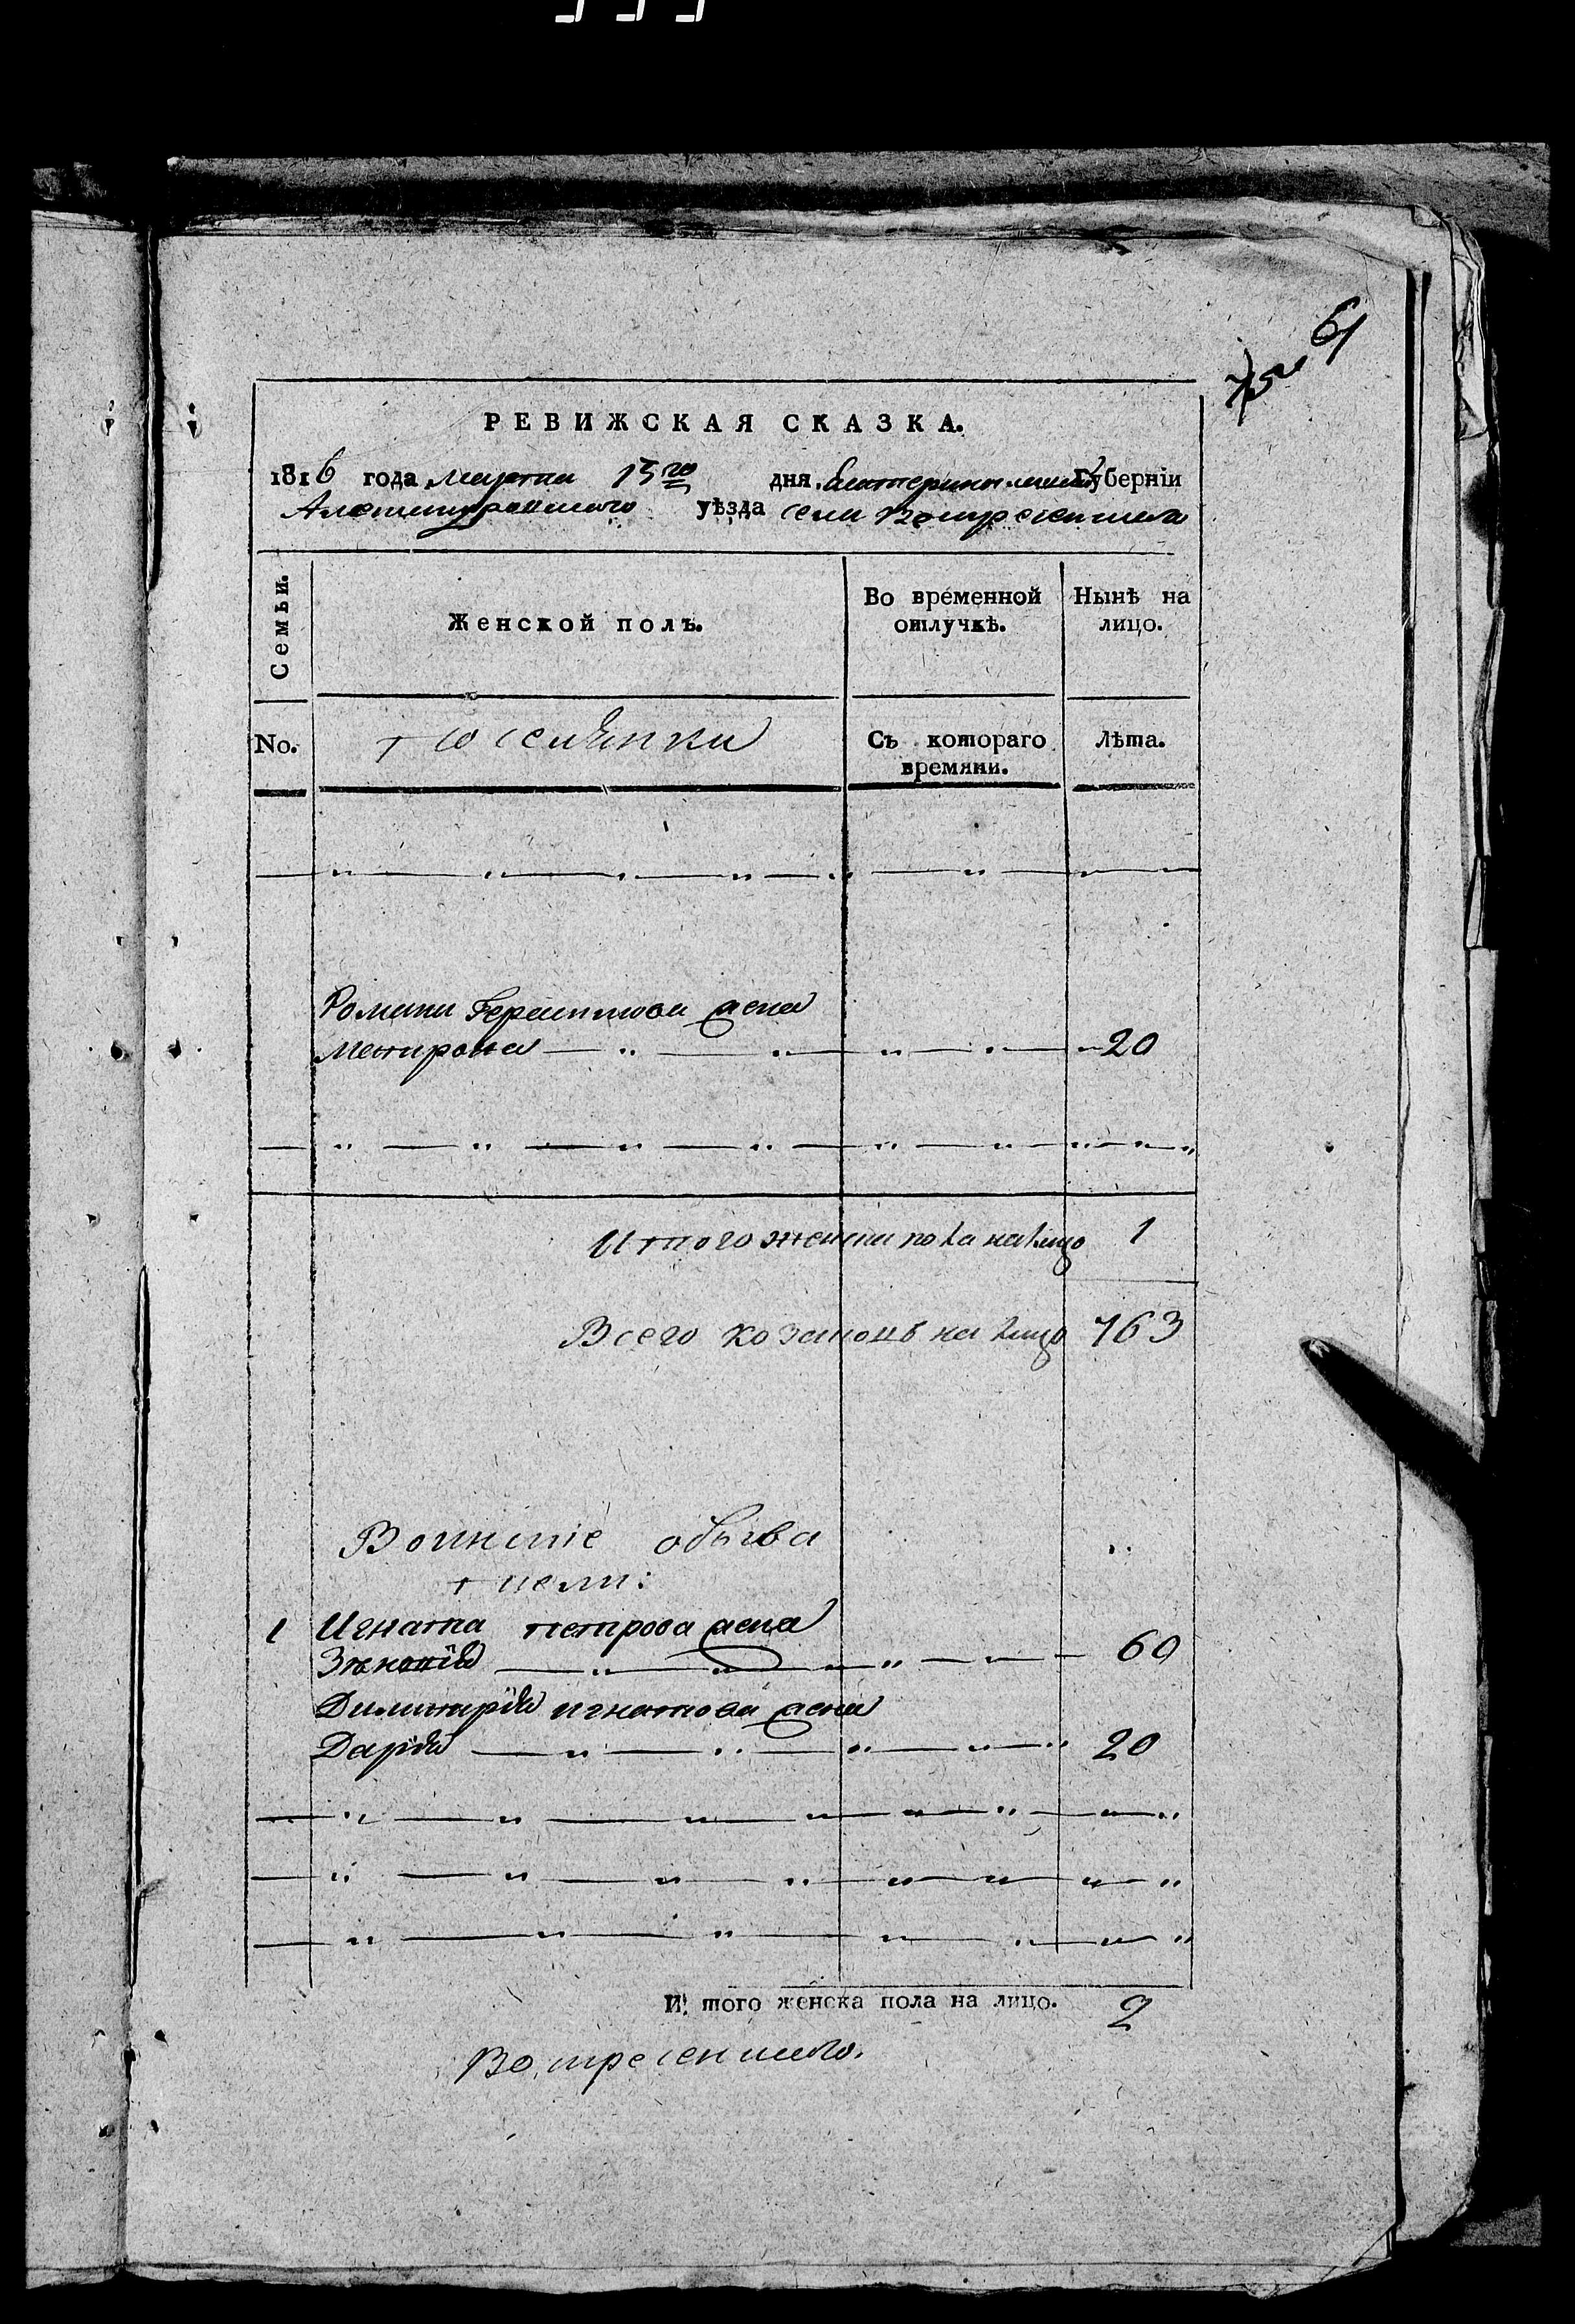 61
75
РЕВИЖСКАЯ СКАЗКА.
1816 года марта 15го дня Екатеринославской Губерніи
Александровского уѣзда села Воскресенского
Семьи.
Женской полъ.
Во временной отлучкѣ.
Нынѣ на лицо.
No.
поселянки
Съ котораго времяни.
Лѣта.
Романа Герасимова жена
Матрона 20
Итого женска пола на лицо 1
Всего козаковъ на лицо 763
Воинскіе обыва
тели:
1 Игната петрова жена
Зѣновія 60
Димитрія игнатова жена
Дарія 20
И того женска пола на лицо. 2
Воскресенского.